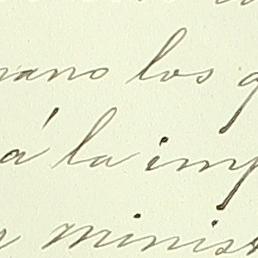 mano los q
á la imp
r minist